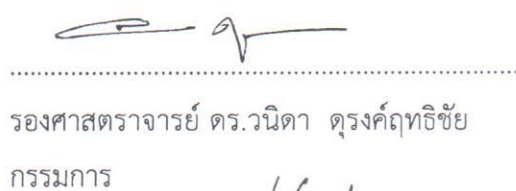 รองศาสตราจารย์ ดร.วนิดา ดุรงค์ฤทธิชัย
กรรมการ